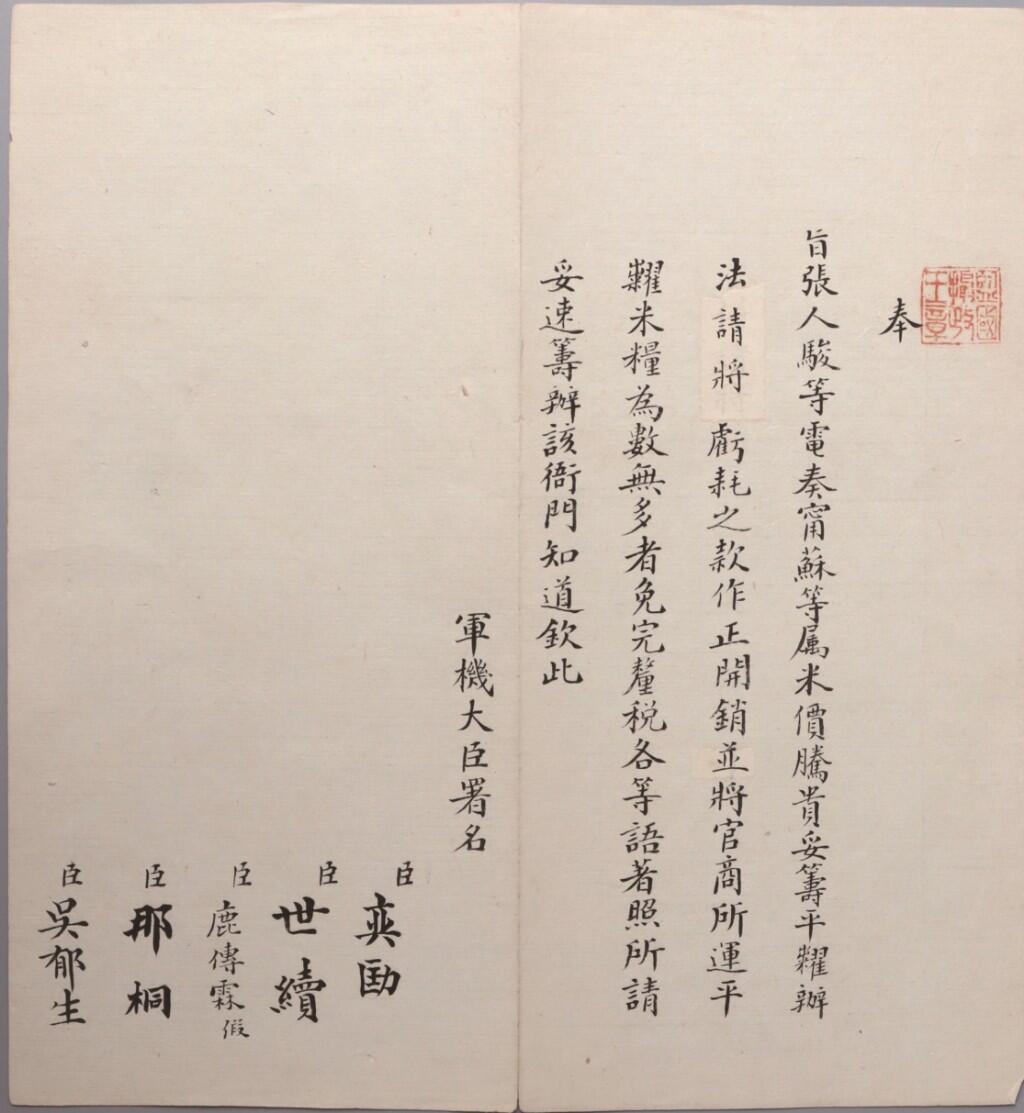 監國
攝政
王章
奉
旨張人駿等電奏甯蘇等属米價騰貴妥籌平糶辦
法請將虧耗之款作正開銷並將官商所運平
糶米糧為數無多者免完釐稅各等語著照所請
妥速籌辦該衙門知道欽此
軍機大臣署名
臣奕劻
臣世續
臣鹿傳霖假
臣那桐
臣吳郁生